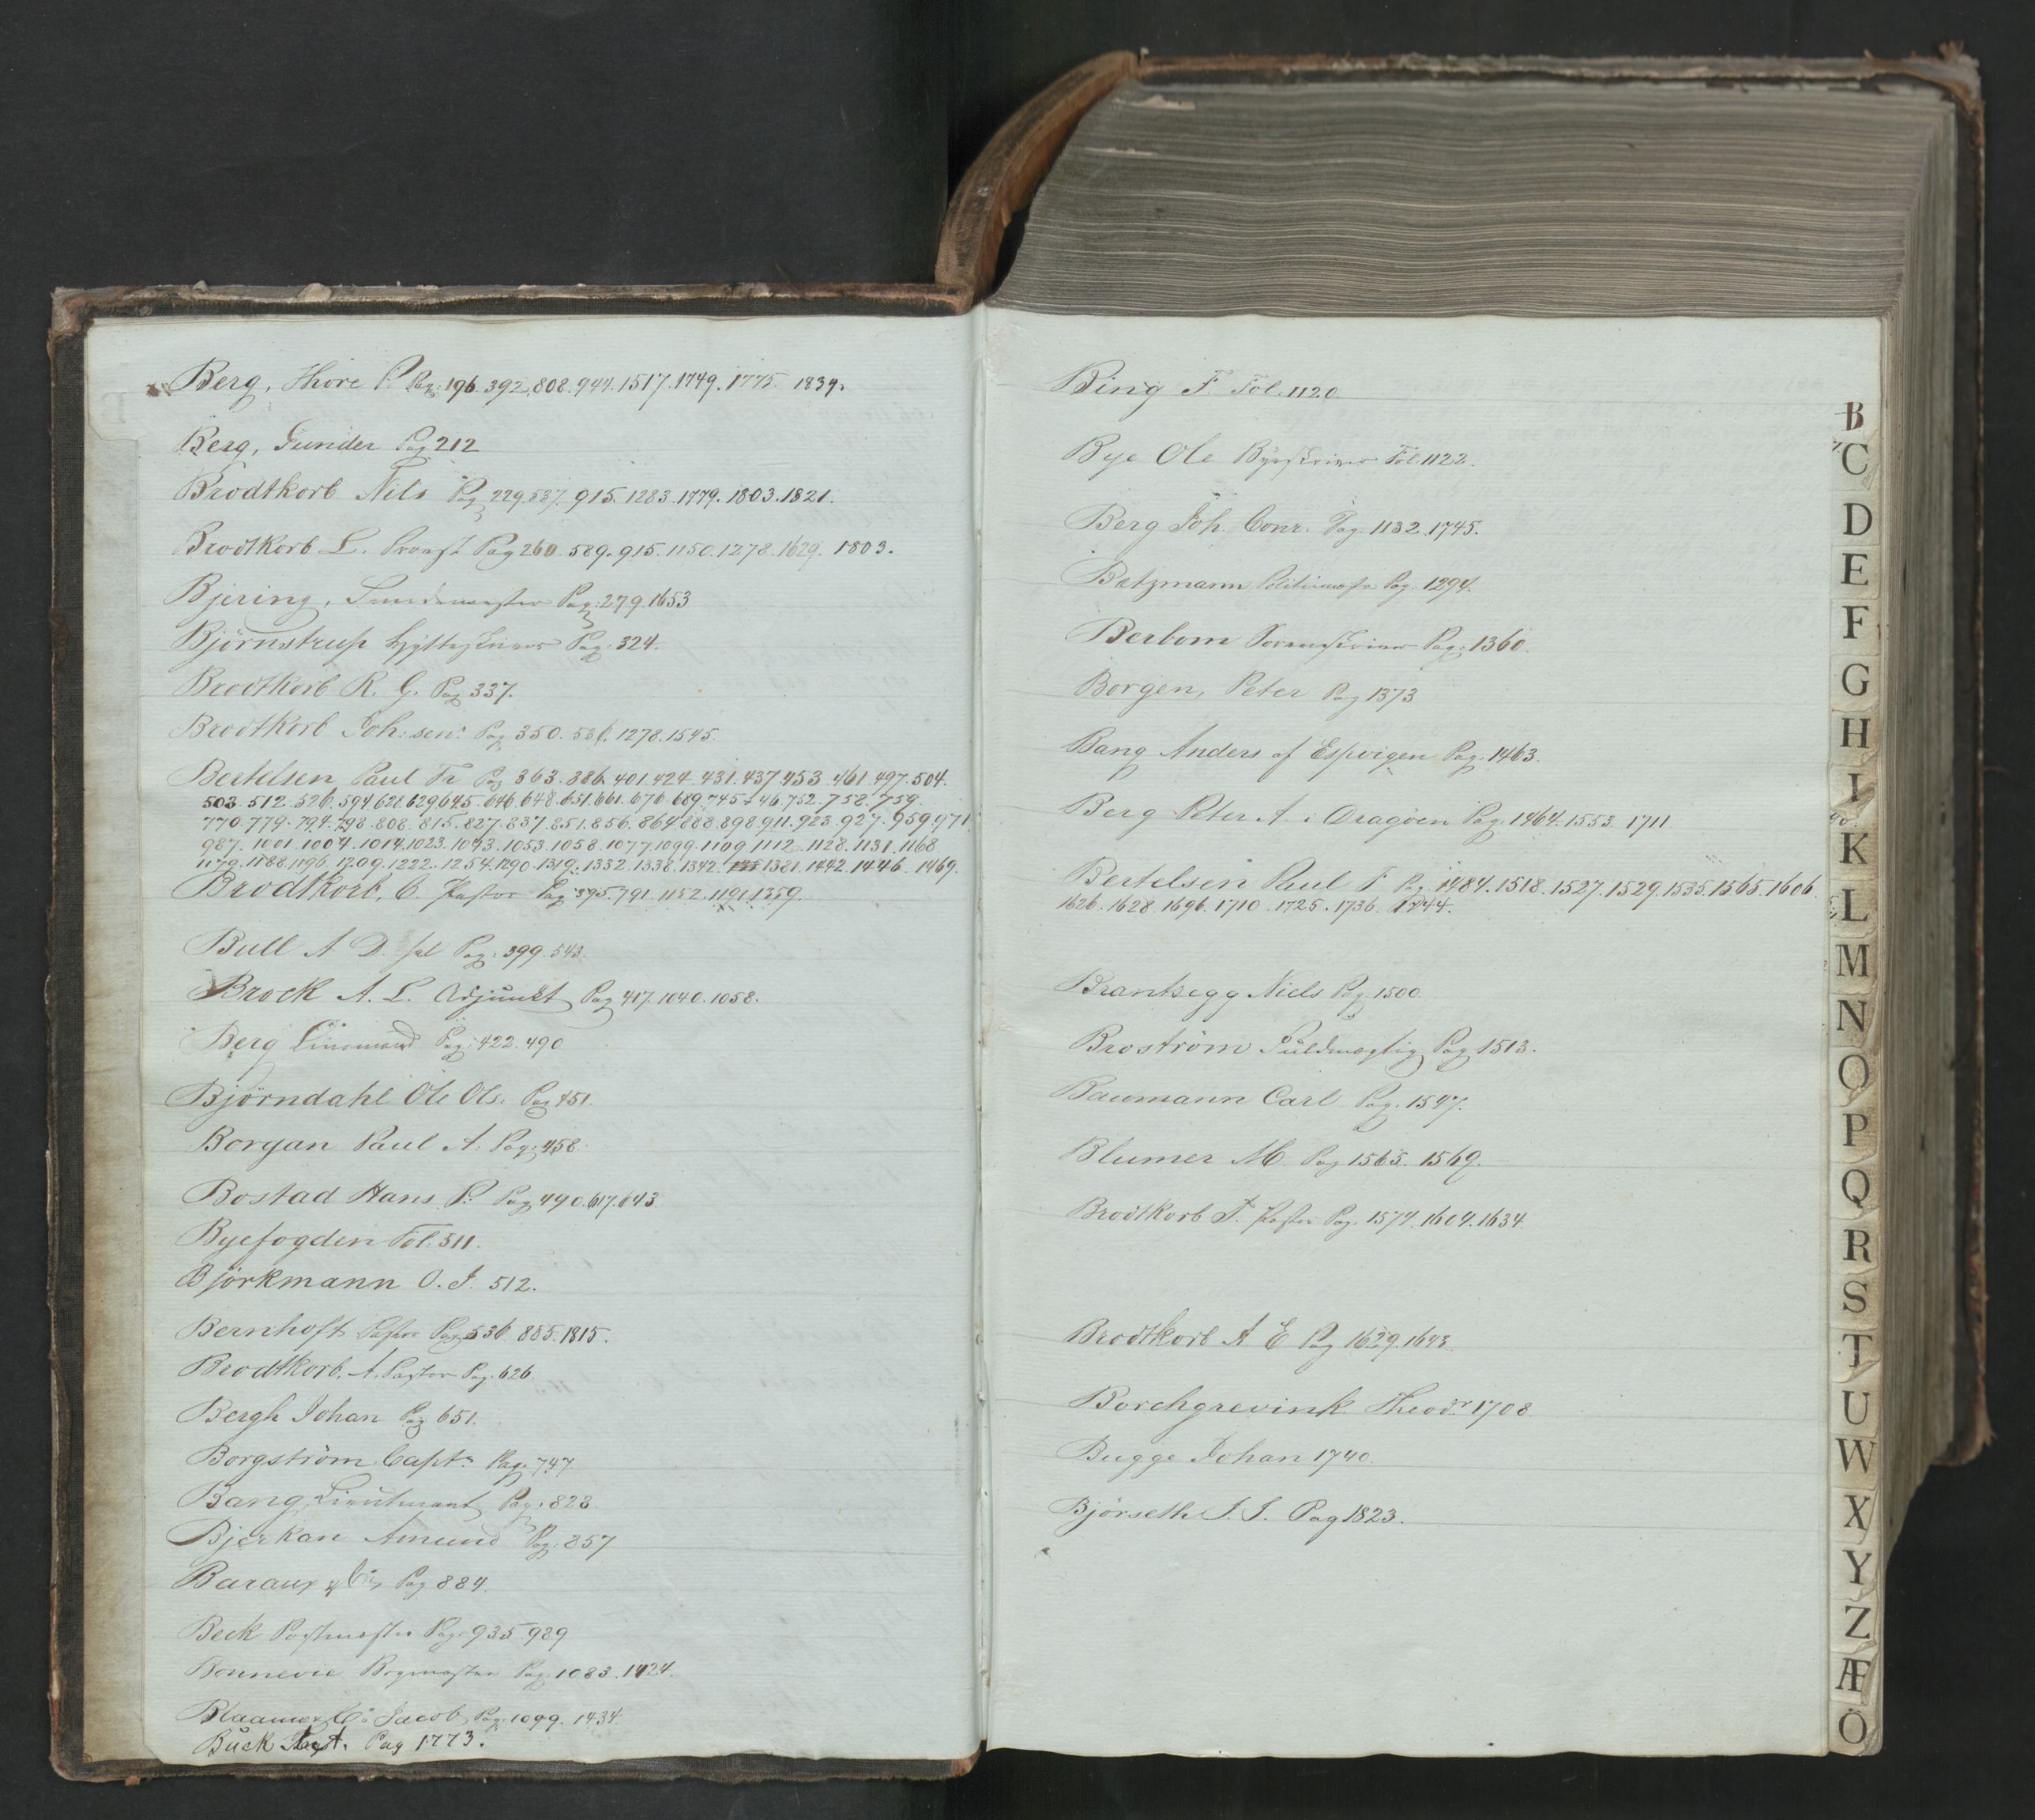 Berg, Thore P. Pag: 196. 392. 808. 944. 1517. 1749. 1775. 1834.
Berg, Gunder Pag 212
Brodtkorb Nils Pag 229. 537. 915. 1283. 1779. 1803. 1821.
Brodtkorb L. Provst Pag 260. 589. 915. 1150. 1278. 1629. 1803.
Bjering, Pag: 279. 1653
Björnstrup Hytteskriver Pag: 324.
Brodtkorb R. G. Pag 337.
Brodtkorb Joh: sen: Pag 350. 536. 1278. 1545.
Bertelsen Paul Fr Pag 363. 386. 401. 424. 431. 437. 453. 461. 497. 504.
503. 512. 526. 594. 628. 629. 645. 646. 648. 651. 661. 676. 689. 745. 46. 752. 758. 759.
770. 779. 794. 798. 808. 815. 827. 837. 851. 856. 864. 888. 898. 911. 923. 927. 959. 971.
987. 1001. 1004. 1014. 1023. 1043. 1053. 1058. 1077. 1099. 1109. 1112. 1128. 1131. 1168.
1179. 1188. 1196. 1209. 1222. 1254. 1290. 1319. 1332. 1338. 1342. 1381. 1442. 1446. 1469.
Brodtkorb, C. Pastor Pag 395. 791. 1152. 1191. 1359.
Bull A D. Pag: 399. 543.
Brock A. L. Adjunkt Pag 417. 1040. 1058.
Berg Pag: 422. 490
Björndahl Ole Ols. Pag 451.
Borgan Paul A. Pag: 458.
Bostad Hans P: Pag 490. 617. 643
Byefogden Fol. 511.
Björkmann O. J. 512.
Bernhoft Pastor Pag 536. 885. 1815.
Brodtkorb, A. Pastor Pag. 626.
Bergh Johan Pag 651.
Borgström Captn Pag. 747
Bang, Lieutenant Pag. 823.
Bjerkan Amund Pag. 857
Baraux & Co Pag 884.
Beck Postmester Pag. 935. 989
Bonnevie Pag. 1083. 1424.
Jacob Pag. 1099. 1434.
Buck Pag 1773.
Bing F. Fol. 1120.
Bye Ole Byeskriver Fol. 1122.
Berg Joh. Conr. Pag. 1132. 1745.
Bætzmann Politimester Pag. 1294.
Berbom Sorenskriver Pag: 1360.
Borgen, Peter Pag 1373
Bang Anders af Espvigen Pag. 1463.
Berg Peter A i Dragöen Pag. 1464. 1553. 1711.
Bertelsen Paul F Pag. 1484. 1518. 1527. 1529. 1535. 1565. 1606.
1626. 1628. 1696. 1710. 1725. 1736. 1744.
Brantsegg Niels Pag. 1500.
Broström Fuldmegtig Pag 1513.
Baumann Carl Pag. 1547.
Blumer M. Pag 1565. 1569.
Brodtkorb T. Pastor Pag. 1574. 1604. 1634.
Brodtkorb A E Pag 1629. 1643.
Borchgrevink Theodr 1708.
Bugge Johan 1740.
Björseth J. J. Pag 1823.
B
C
D
E
F
G
H
I
K
L
M
N
O
P
Q
R
S
T
U
W
X
Y
Z
Æ
Ö